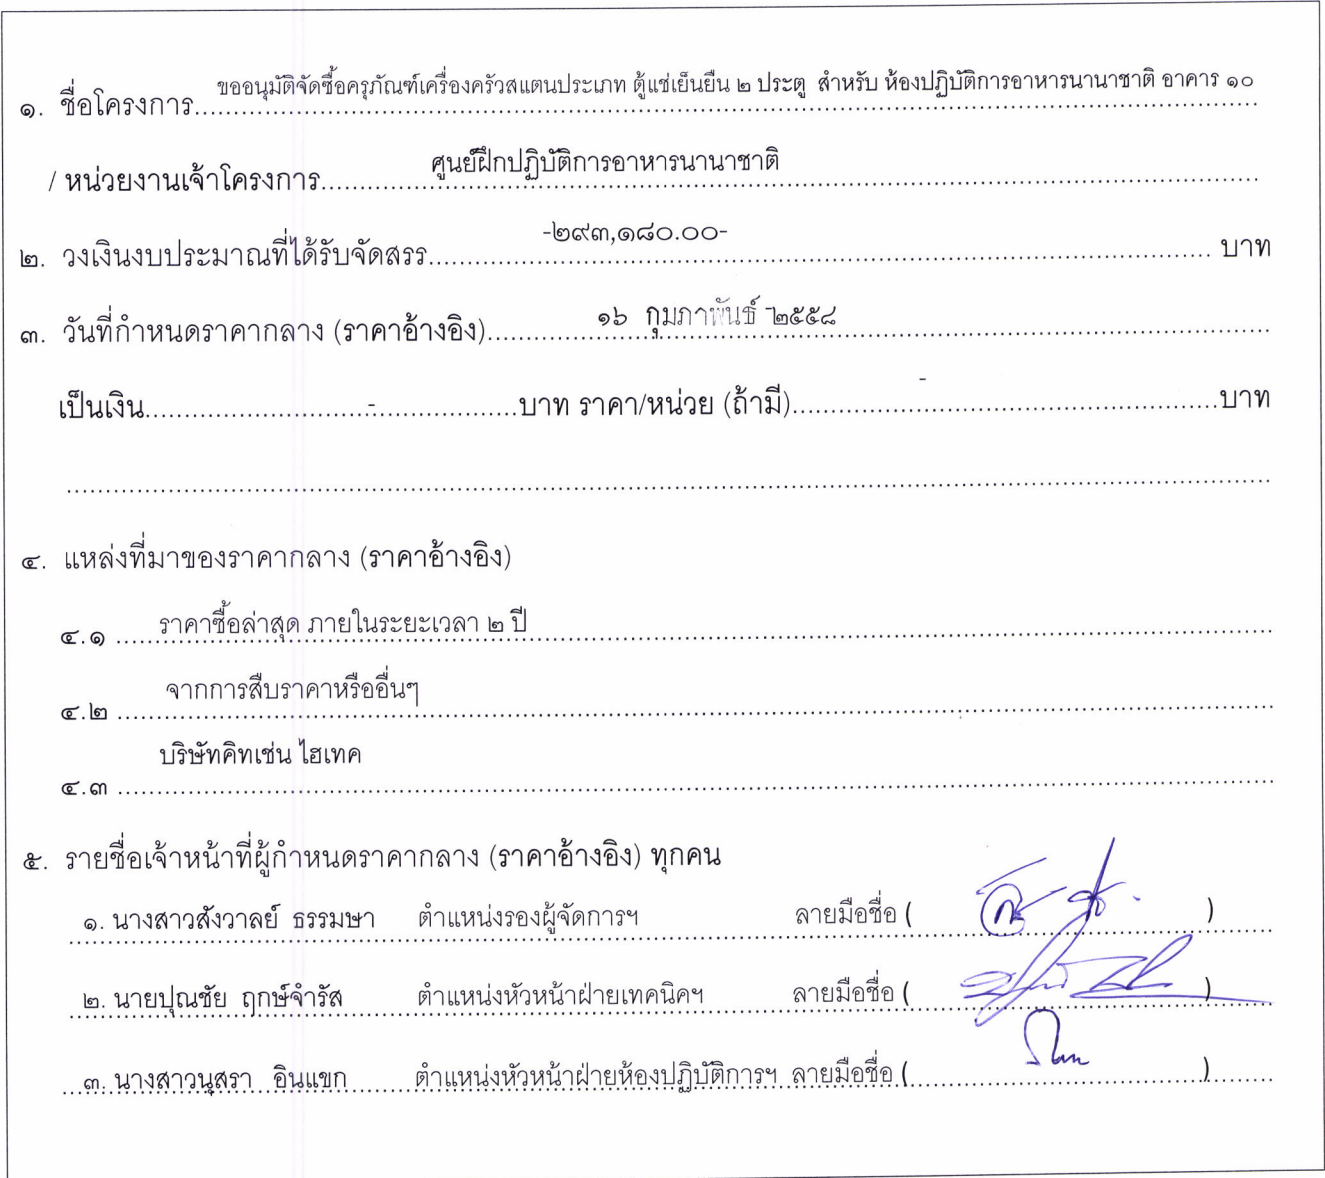 ๑. ชื่อโครงการ ขออนุมัติจัดซื้อครุภัณฑ์เครื่องครัวสแตนประเภท ตู้แช่เย็นยืน ๒ ประตู สำหรับ ห้องปฏิบัติการอาหารนานาชาติ อาคาร ๑๐
/ หน่วยงานเจ้าโครงการ ศูนย์ฝึกปฏิบัติการอาหารนานาชาติ
๒. วงเงินงบประมาณที่ได้รับจัดสรร -๒๙๓,๑๘๐.๐๐- บาท
๓. วันที่กำหนดราคากลาง (ราคาอ้างอิง) ๑๖ กุมภาพันธ์ ๒๕๕๘
เป็นเงิน - บาท ราคา/หน่วย (ถ้ามี) - บาท
๔. แหล่งที่มาของราคากลาง (ราคาอ้างอิง)
๔.๑ ราคาซื้อล่าสุด ภายในระยะเวลา ๒ ปี
๔.๒ จากการสืบราคาหรืออื่นๆ
๔.๓ บริษัทคิทเช่น ไฮเทค
๕. รายชื่อเจ้าหน้าที่ผู้กำหนดราคากลาง (ราคาอ้างอิง) ทุกคน
๑. นางสาวสังวาลย์ ธรรมษา ตำแหน่งรองผู้จัดการฯ ลายมือชื่อ ( )
๒. นายปุณชัย ฤกษ์จำรัส ตำแหน่งหัวหน้าฝ่ายเทคนิคฯ ลายมือชื่อ ( )
๓. นางสาวนุสรา อินแขก ตำแหน่งหัวหน้าฝ่ายห้องปฏิบัติการฯ ลายมือชื่อ ( )